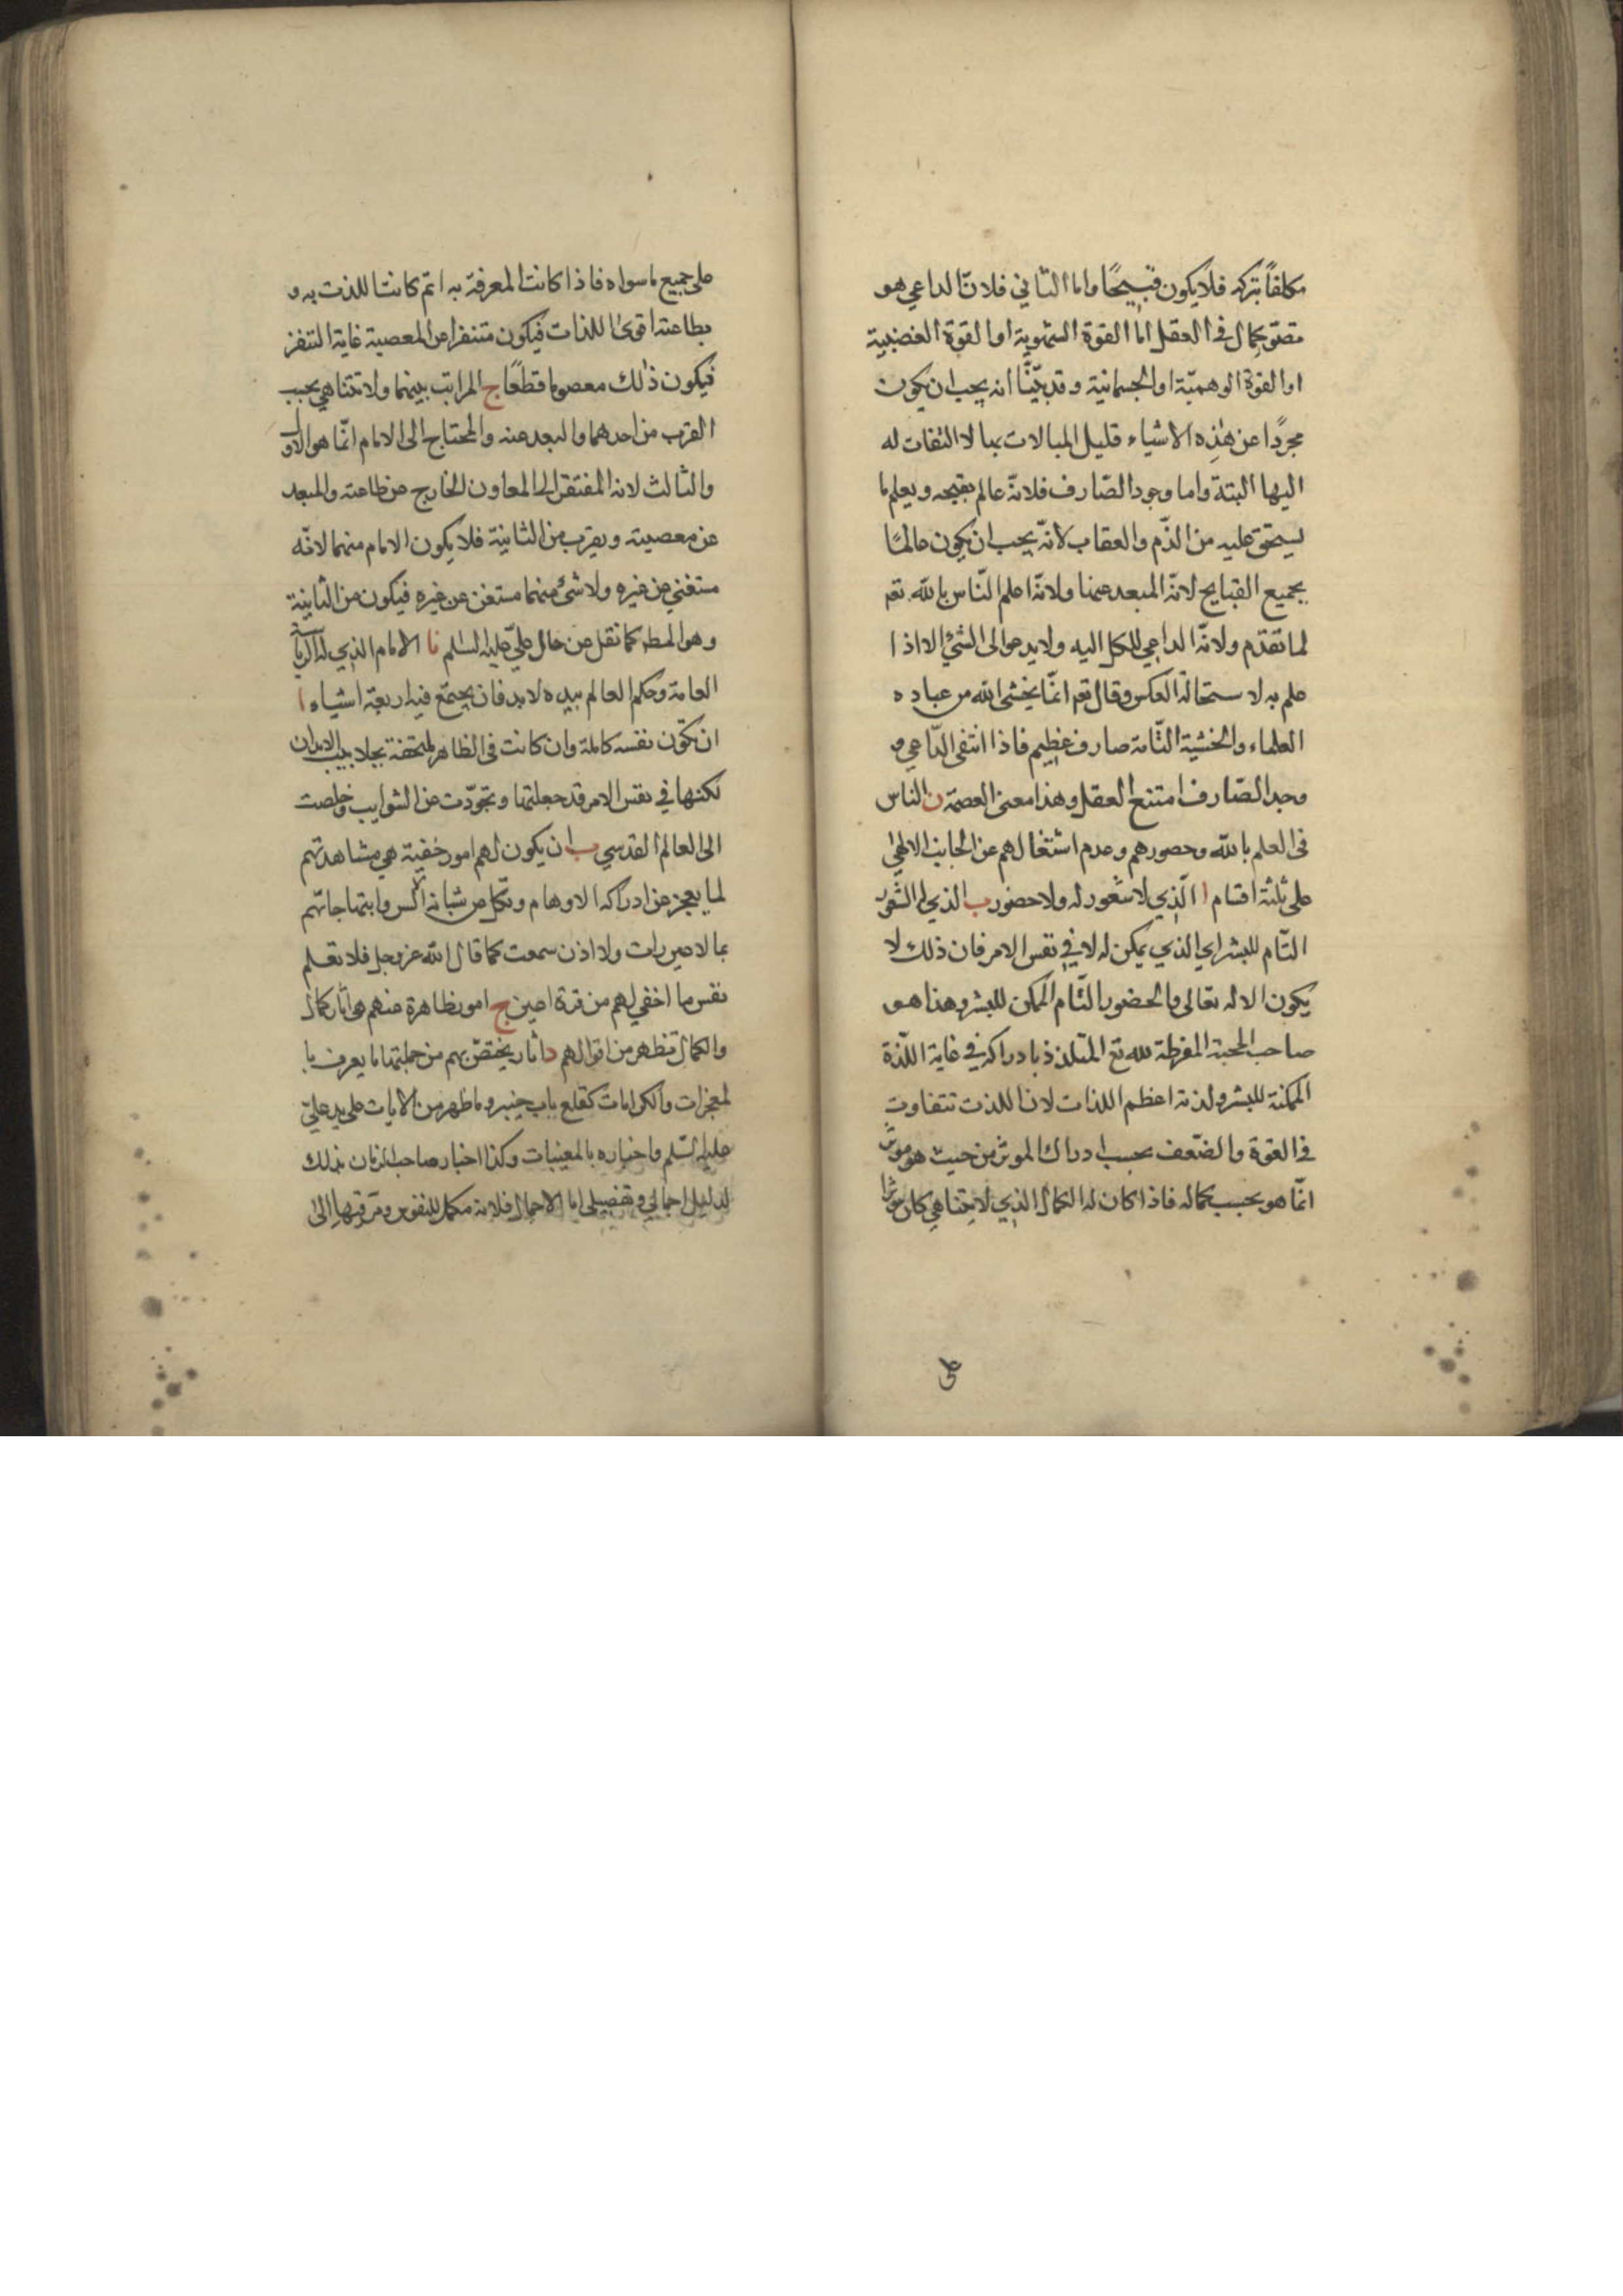 مكلفاً بتركه فلا يكون قبيحًا واما الثاني فلانّ الداعي هو
تصوّر كمال في العقل اما القوة الشهوية او القوة الغضبية
او القوة الوهميّة او الجسمانية وقد بيّنّا انه يجب ان يكون
مجردًا عن هذه الاشياء قليل المبالات بها لا التفات له
اليها البتة واما وجود الصّارف فلانّه عالم بقبحه ويعلم ما
يستحق عليه من الذّم والعقاب لانّه يجب ان يكون عالمًا
بجميع القبايح لانّه المبعد عنها ولانّه اعلم النّاس بالله تعم
لما تقدّم ولانّه الداعي للكل اليه ولا يدعو الى الشئ الا اذا
علم به لاستحالة العكس وقال تعم انّما يخشى الله من عباده
العلماء والخشية التّامة صارف عظيم فاذا انتفى الدّاعي و
وجد الصّارف امتنع العقل وهذا معنى العصمة ن الناس
في العلم بالله وحضورهم وعدم اشتغالهم عن الجانب الالهيّ
على ثلثة اقسام ا الّذي لا شعور له ولا حضور ب الذي له الشعور
التّام للبشر اي الذي يمكن له لا في نفس الامر فان ذلك لا
يكون الا له تعالى والحضور التّام الممكن للبشر وهذا هو
صاحب المحبة المفرطة لله تع المتلذذ بادراكه في غاية اللّذة
الممكنة للبشر ولذته اعظم اللذات لان اللذت تتفاوت
في القوة والضّعف بحسب ادراك الموثر من حيث هو موثر
انّما هو بحسب كماله فاذا كان له الكمال الذي لا يتناهي كان موثرا
على جميع ما سواه فاذا كانت المعرفة به اتم كانت اللذت به و
بطاعته اقوى اللذات فيكون متنفرا عن المعصية غاية التنفر
فيكون ذلك معصوما قطعًا ج المراتب بينهما ولا تتناهي بحسب
القرب من احدهما والبعد عنه والمحتاج الى الامام انّما هو الاول
والثالث لانه المفتقر الى المعاون الخارج عن طاعته والمبعد
عن معصيته ويقرب من الثانية فلا يكون الامام منهما لانّه
مستغني عن غيره ولا شئ منهما مستغن عن غيره فيكون من الثانية
وهو المط كما نقل عن حال عليّ عليه السلم نا الامام الذي له الرياسة
العامة وحكم العالم بيده لابد فان يجتمع فيه اربعة اشياء ا
ان تكون نفسه كاملة وان كانت في الظاهر ملتحفة بجلابيب الابدان
لكنها في نفس الامر قد جعلتها وتجرّدت عن الشوايب وخلصت
الى العالم القدسي ب ان يكون لهم امور خفية هي مشاهدتهم
لما يعجز عن ادراكه الاوهام وتكل عن شبانه الالسن وابتهاجاتهم
بما لا عين رات ولا اذن سمعت كما قال الله عز وجل فلا تعلم
نفس ما اخفي لهم من قرة اعين ج امور ظاهرة عنهم هي آثار كمال
والكمال تظهر من اقوالهم د آثار يختصّ بهم من جملتها ما يعرف با
لمعجزات والكرامات كقلع باب خيبر وما ظهر من الايات على يد عليّ
عليه السّلم واخباره بالمغيبات وكذا اخبار صاحب الزمان بذلك
لدليل اجمالي وتفصيلي اما الاجمال فلانه مكمل للنفوس ومرقيها الى